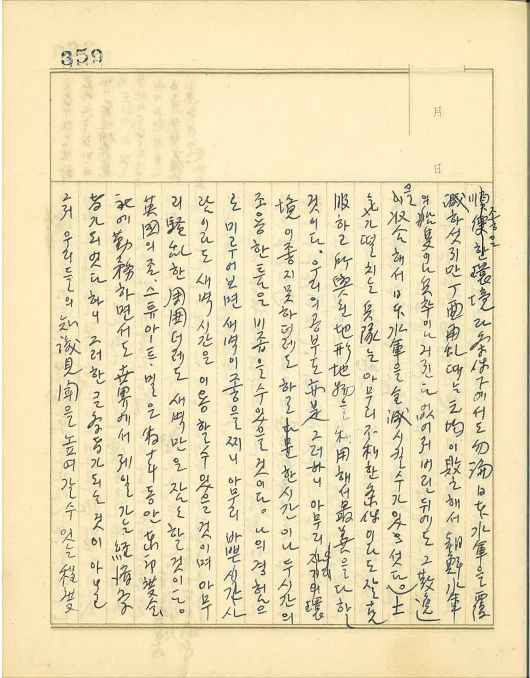 359
月
日
順便한 環境과 좋은 条件下에서도 勿論 日本水軍을 覆
滅하셧지만 丁酉再乱때는 元均이 敗을해서 朝鮮水軍
의 船隻이나 兵卒이나 거진다 없어져버린뒤에도 그 散逸
을 収合해서 日本水軍을 全滅시킬수가 있으셧다。士
氣가 떨치는 兵隊는 아무리 不利한 条件이라도 잘 克
服하고 所與된 地形地物을 利用해서 最善을 다할
것이다。우리의 공부도 亦是 그러하니 아무리 自己의 環
境이 좋지못하더래도 하로 한시간이나 두시간의
조용한 틈을 비줍을수있을 것이다。나의 경험으
로 미루어보면 새벽이 좋을찌니 아무리 바쁜 사람
이라도 새벽시간을 이용할수있을 것이며 아무
리 騷乱한 周囲더래도 새벽만은 잠잠할것이다。
英國의 죤、스튜아ー트、밀은 數十年동안 東印度会
社에 勤務하면서도 世界에서 제일가는 経済学
者가 되엿다하니 그러한 큰 学者가 되는것이 아닐
우리들의 知識見聞을 높여갈수있는 程度